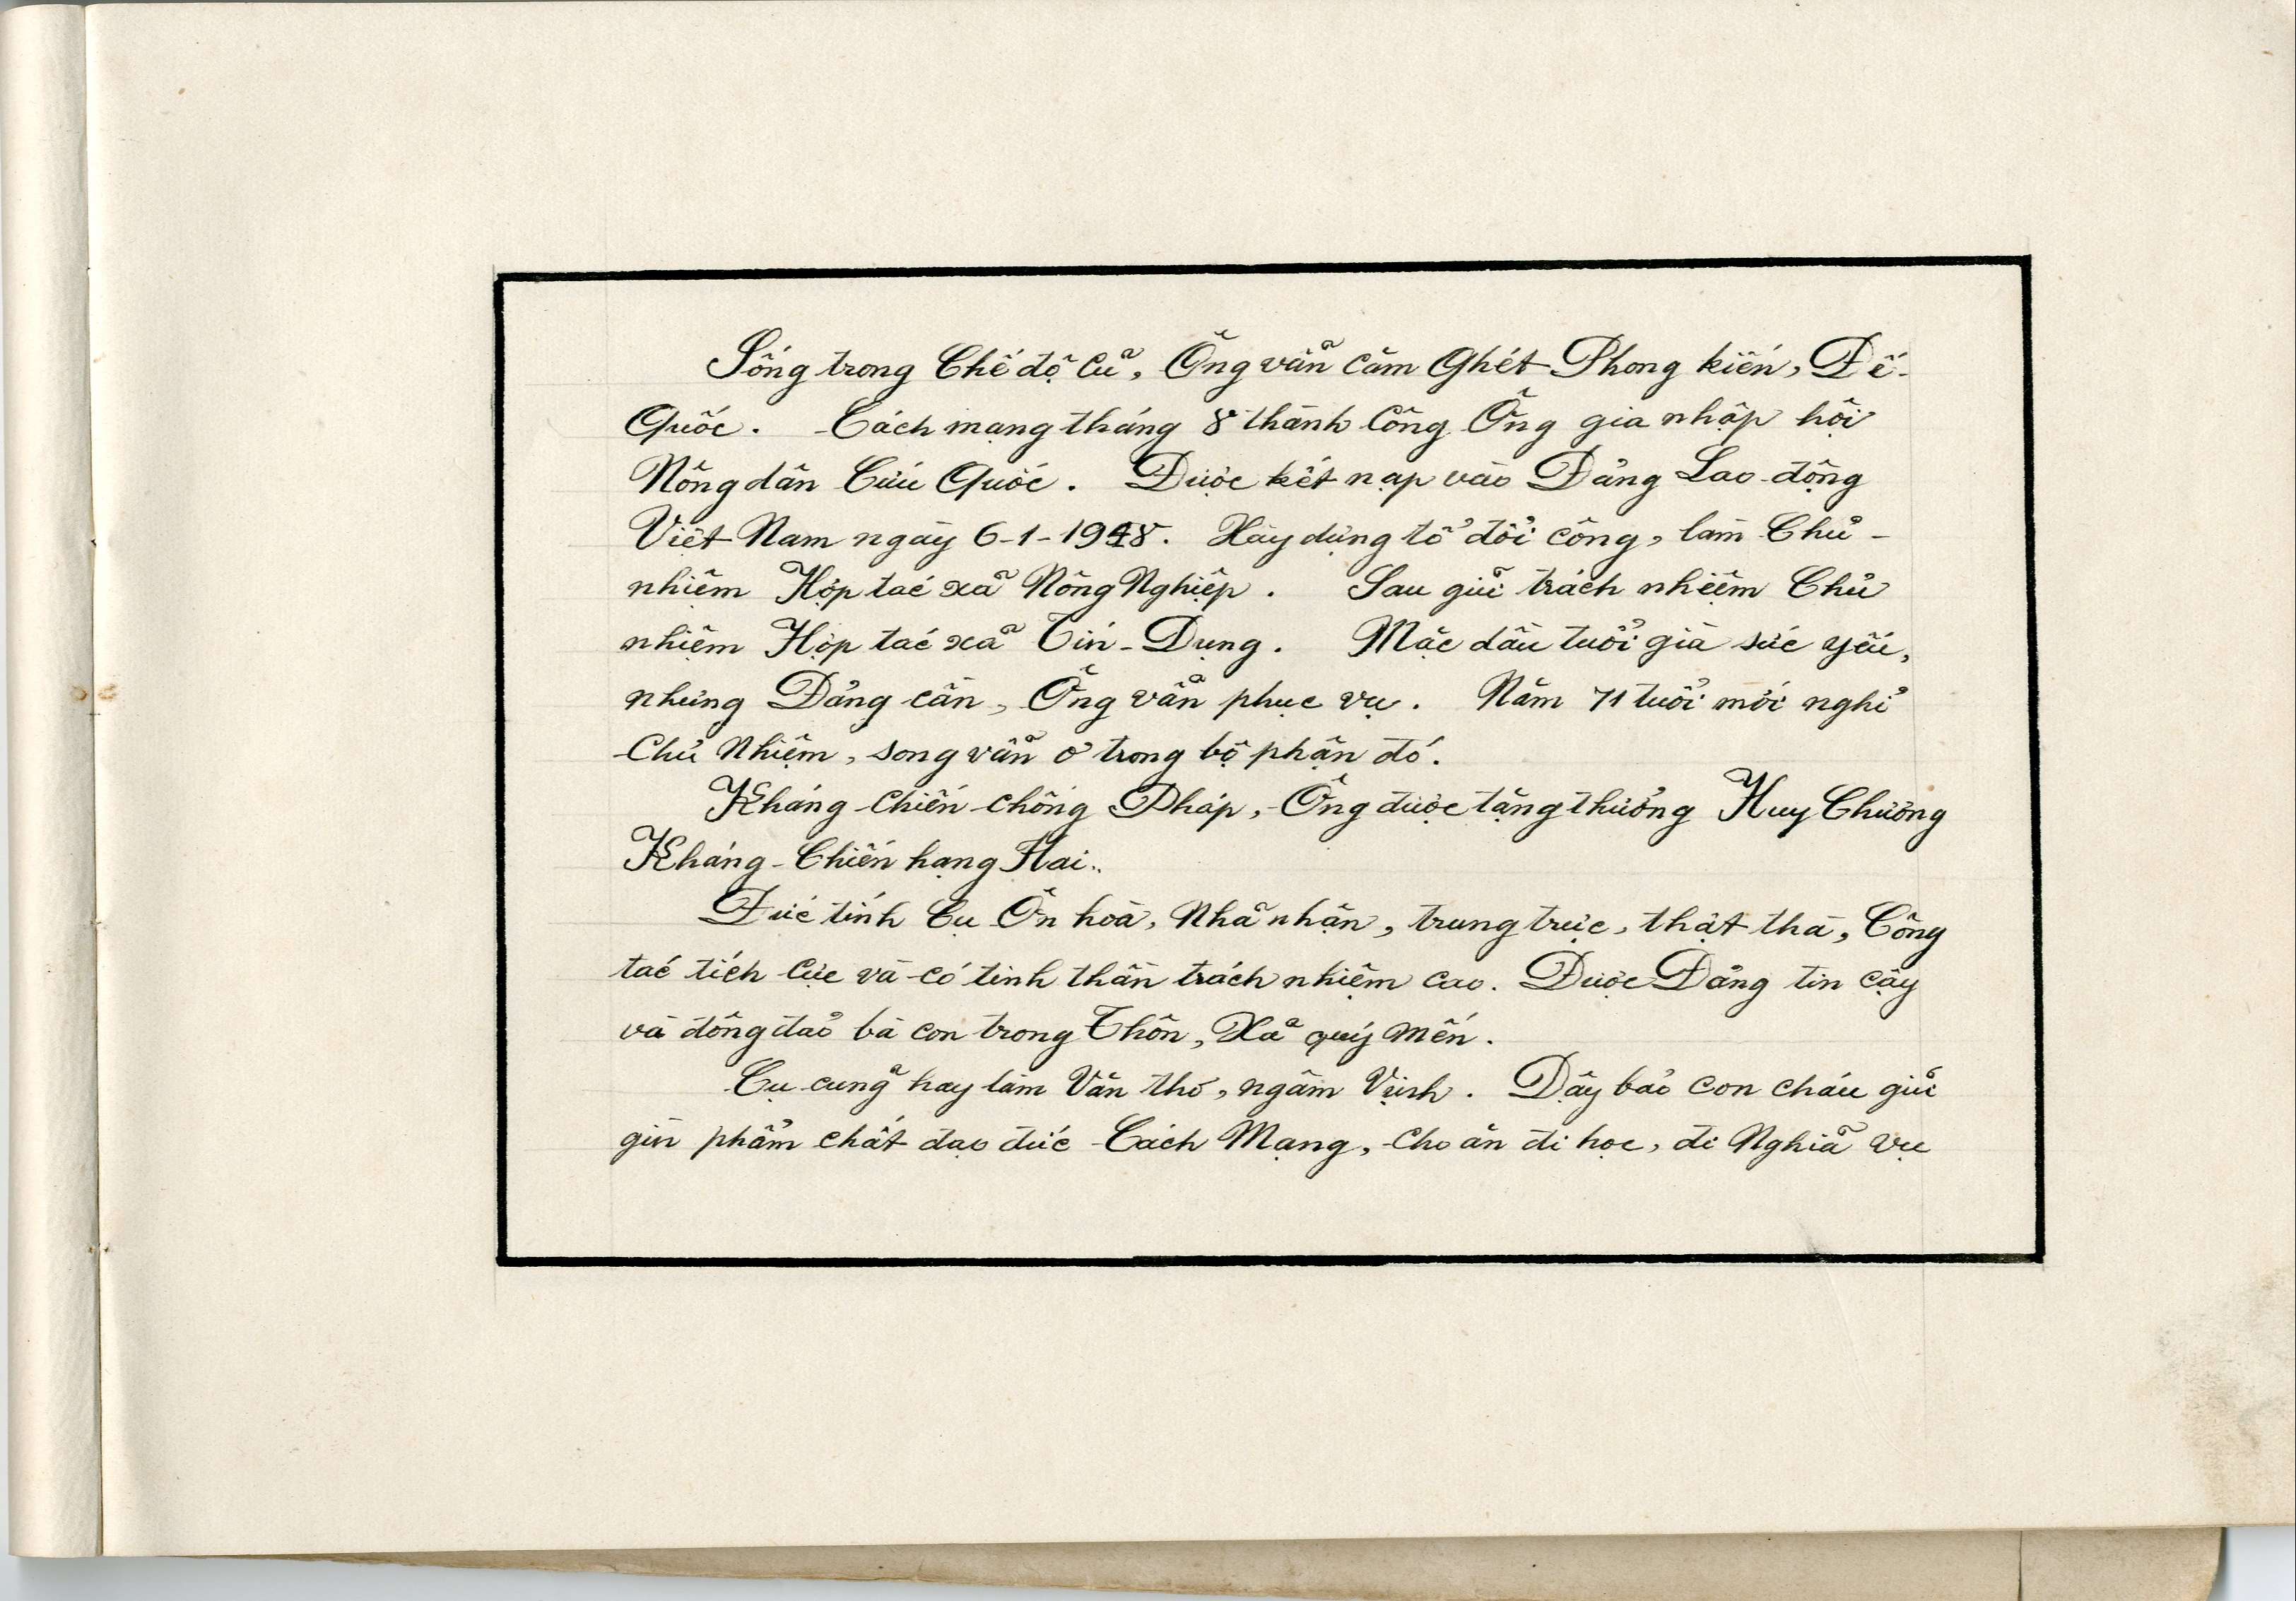 Sống trong Chế độ Cũ, Ông vẫn Căm Ghét Phong kiến, Đế-
Quốc. Cách mạng tháng 8 thành Công Ông gia nhập hội
Nông dân Cứu Quốc. Được kết nạp vào Đảng Lao-động
Việt-Nam ngày 6-1-1948. Xây dựng tổ đổi công, làm Chủ-
nhiệm Hợp tác xã Nông Nghiệp. Sau giữ trách nhiệm Chủ
nhiệm Hợp tác xã Tín-Dụng. Mặc dầu tuổi già sức yếu,
nhưng Đảng cần, Ông vẫn phục vụ. Năm 71 tuổi mới nghỉ
Chủ Nhiệm, song vẫn ở trong bộ phận đó.
Kháng-Chiến chống Pháp, Ông được tặng thưởng Huy Chương
Kháng-Chiến hạng Hai..
Đức tính Cụ Ôn hoà, Nhã nhặn, trung trực, thật thà, Công
tác tích Cực và có tinh thần trách nhiệm cao. Được Đảng tin cậy
và đông đảo bà con trong Thôn, Xã quý mến.
Cụ cũng hay làm Văn thơ, ngâm Vịnh. Dậy bảo con cháu giữ
gìn phẩm chất đạo đức Cách Mạng, Cho ăn đi học, đi Nghĩa vụ